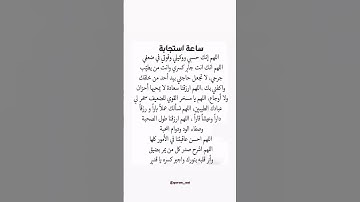 ساعة استجابة
اللهم إنك حسبي ووكيلي وقوتي في ضعفي
اللهم انك انت جابر كسري وانت من يطيّب
جرحي، لا تجعل حاجتي بيد أحد من خلقك
واكفني بك .اللهم ارزقنا سعادة لا يمحيها أحزان
ولا أوجاع، اللهم يا مسخر القوي للضعيف سخر لي
عبادك الطيبين، اللهم نسألك عملاً باراً و رزقاً
داراً وعيشاً قاراً ، اللهم ارزقنا طول الصحبة
وصفاء الود ودوام المحبة
اللهم احسن عاقبتنا في الأمور كلها
اللهم اشرح صدر كل من يمر بضيق
وأنر قلبه بنورك واجبر كسره يا قدير